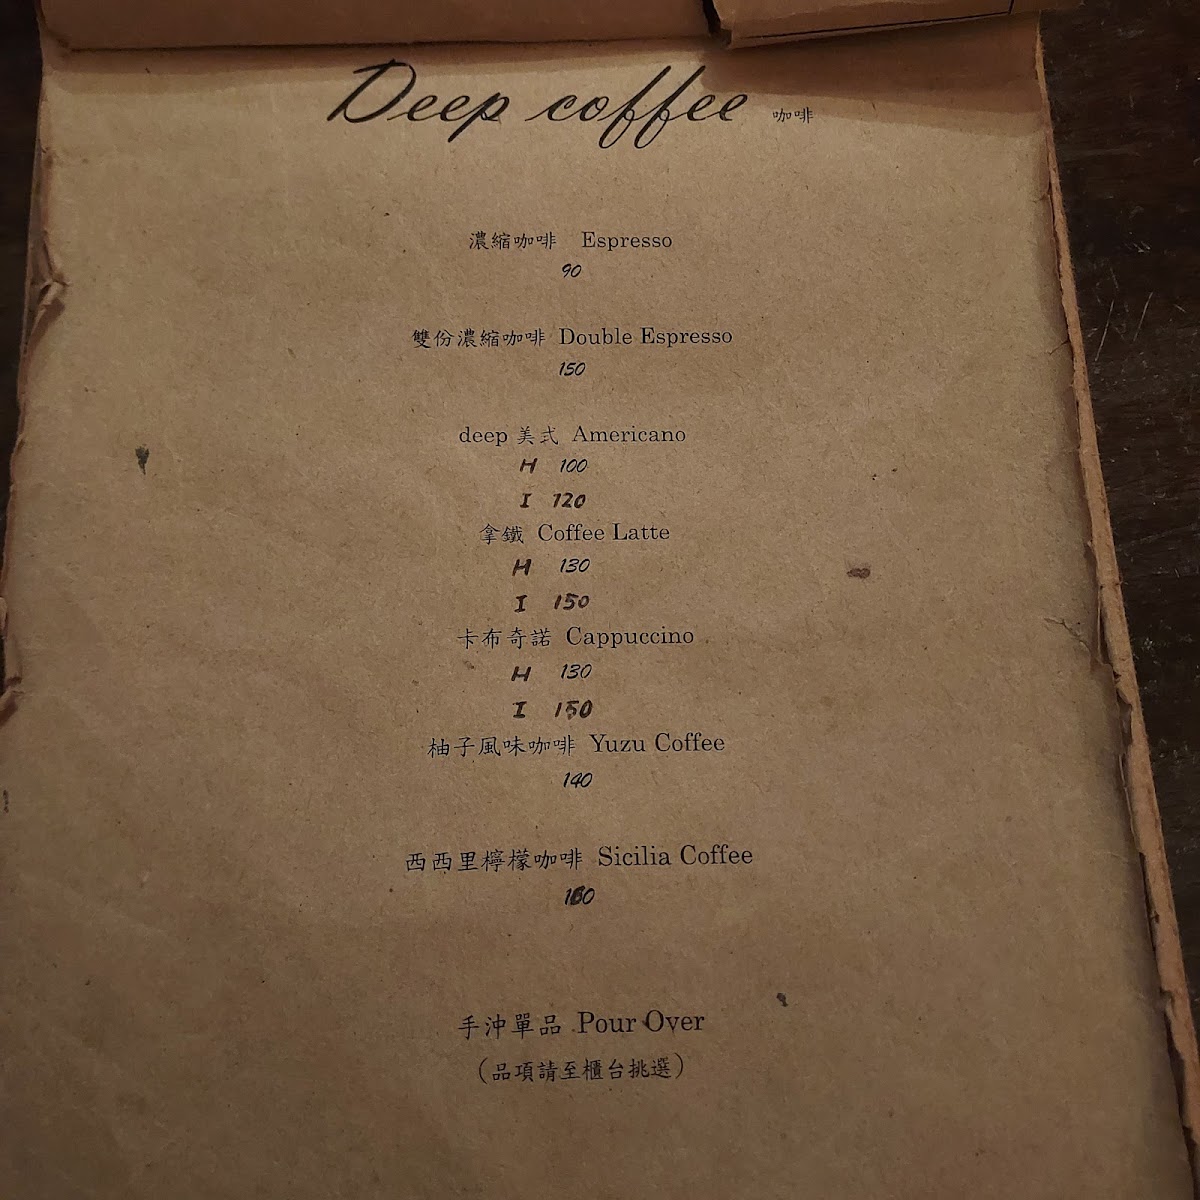 Deep coffee 咖啡
濃縮咖啡 Espresso
90
雙份濃縮咖啡 Double Espresso
150
deep 美式 Americano
H 100
I 120
拿鐵 Coffee Latte
H 130
I 150
卡布奇諾 Cappuccino
H 130
I 150
柚子風味咖啡 Yuzu Coffee
140
西西里檸檬咖啡 Sicilia Coffee
手沖單品 Pour Over
(品項請至櫃台挑選)